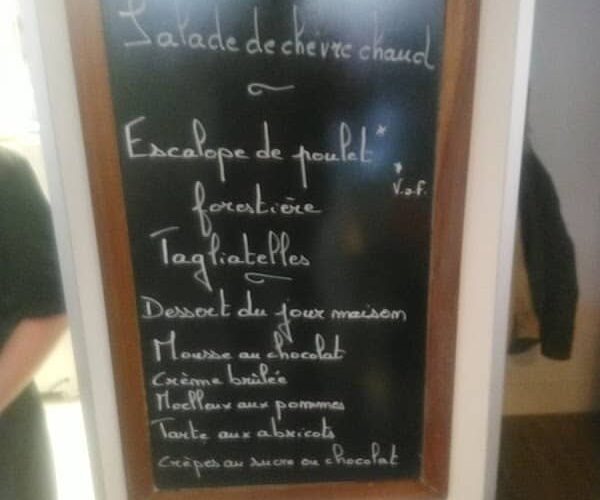 Salade de chèvre chaud
Escalope de poulet*
* V.o.F.
forestière
Tagliatelles
Dessert du jour maison
Mousse au chocolat
Crème brûlée
Moelleux aux pommes
Tarte aux abricots
Crêpes au sucre ou chocolat